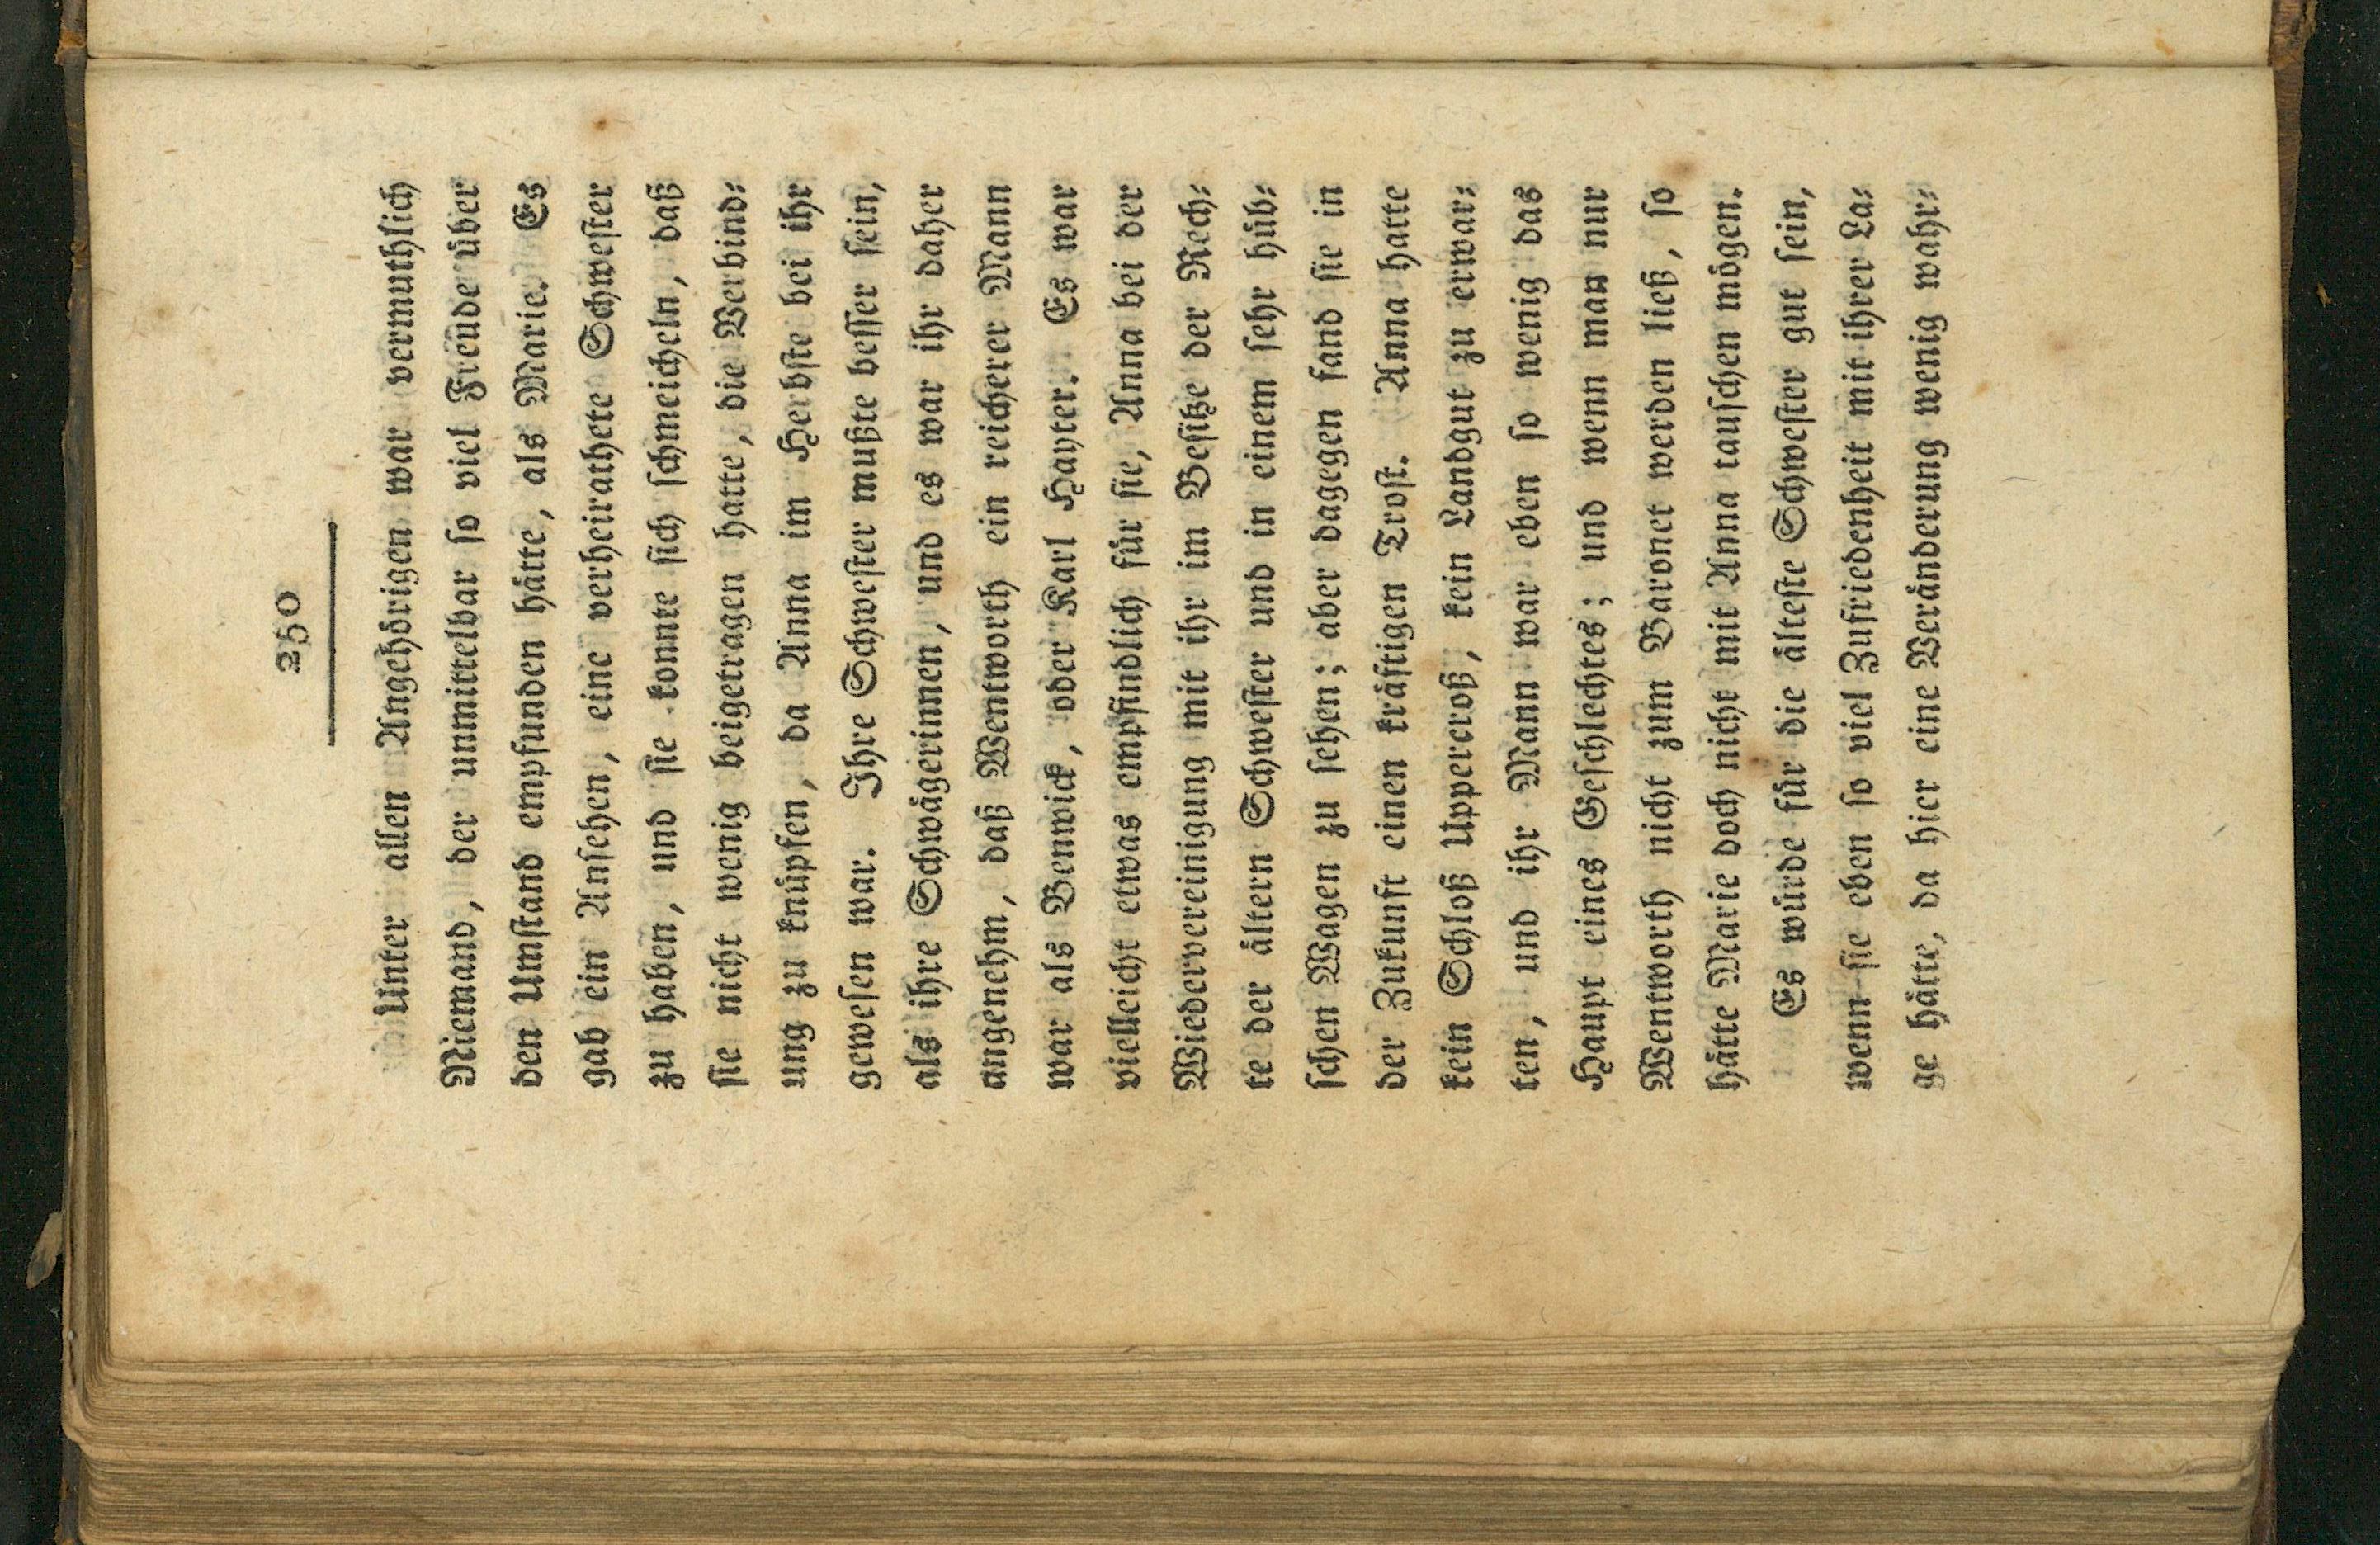 250
Unter allen Angehörigen war vermuthlich
Niemand, der unmittelbar so viel Freude über
den Umstand empfunden hätte, als Marie. Es
gab ein Ansehen, eine verheirathete Schwester
zu haben, und sie konnte sich schmeicheln, daß
sie nicht wenig beigetragen hatte, die Verbind-
ung zu knüpfen, da Anna im Herbste bei ihr
gewesen war. Ihre Schwester mußte besser sein,
als ihre Schwägerinnen, und es war ihr daher
angenehm, daß Wentworth ein reicherer Mann
war als Benwick, oder Karl Hayter. Es war
vielleicht etwas empfindlich für sie, Anna bei der
Wiedervereinigung mit ihr im Besitze der Rech-
te der ältern Schwester und in einem sehr hüb-
schen Wagen zu sehen; aber dagegen fand sie in
der Zukunft einen kräftigen Trost. Anna hatte
kein Schloß Uppercroß, kein Landgut zu erwar-
ten, und ihr Mann war eben so wenig das
Haupt eines Geschlechtes; und wenn man nur
Wentworth nicht zum Baronet werden ließ, so
hätte Marie doch nicht mit Anna tauschen mögen.
Es würde für die älteste Schwester gut sein,
wenn sie eben so viel Zufriedenheit mit ihrer La-
ge hätte, da hier eine Veränderung wenig wahr-